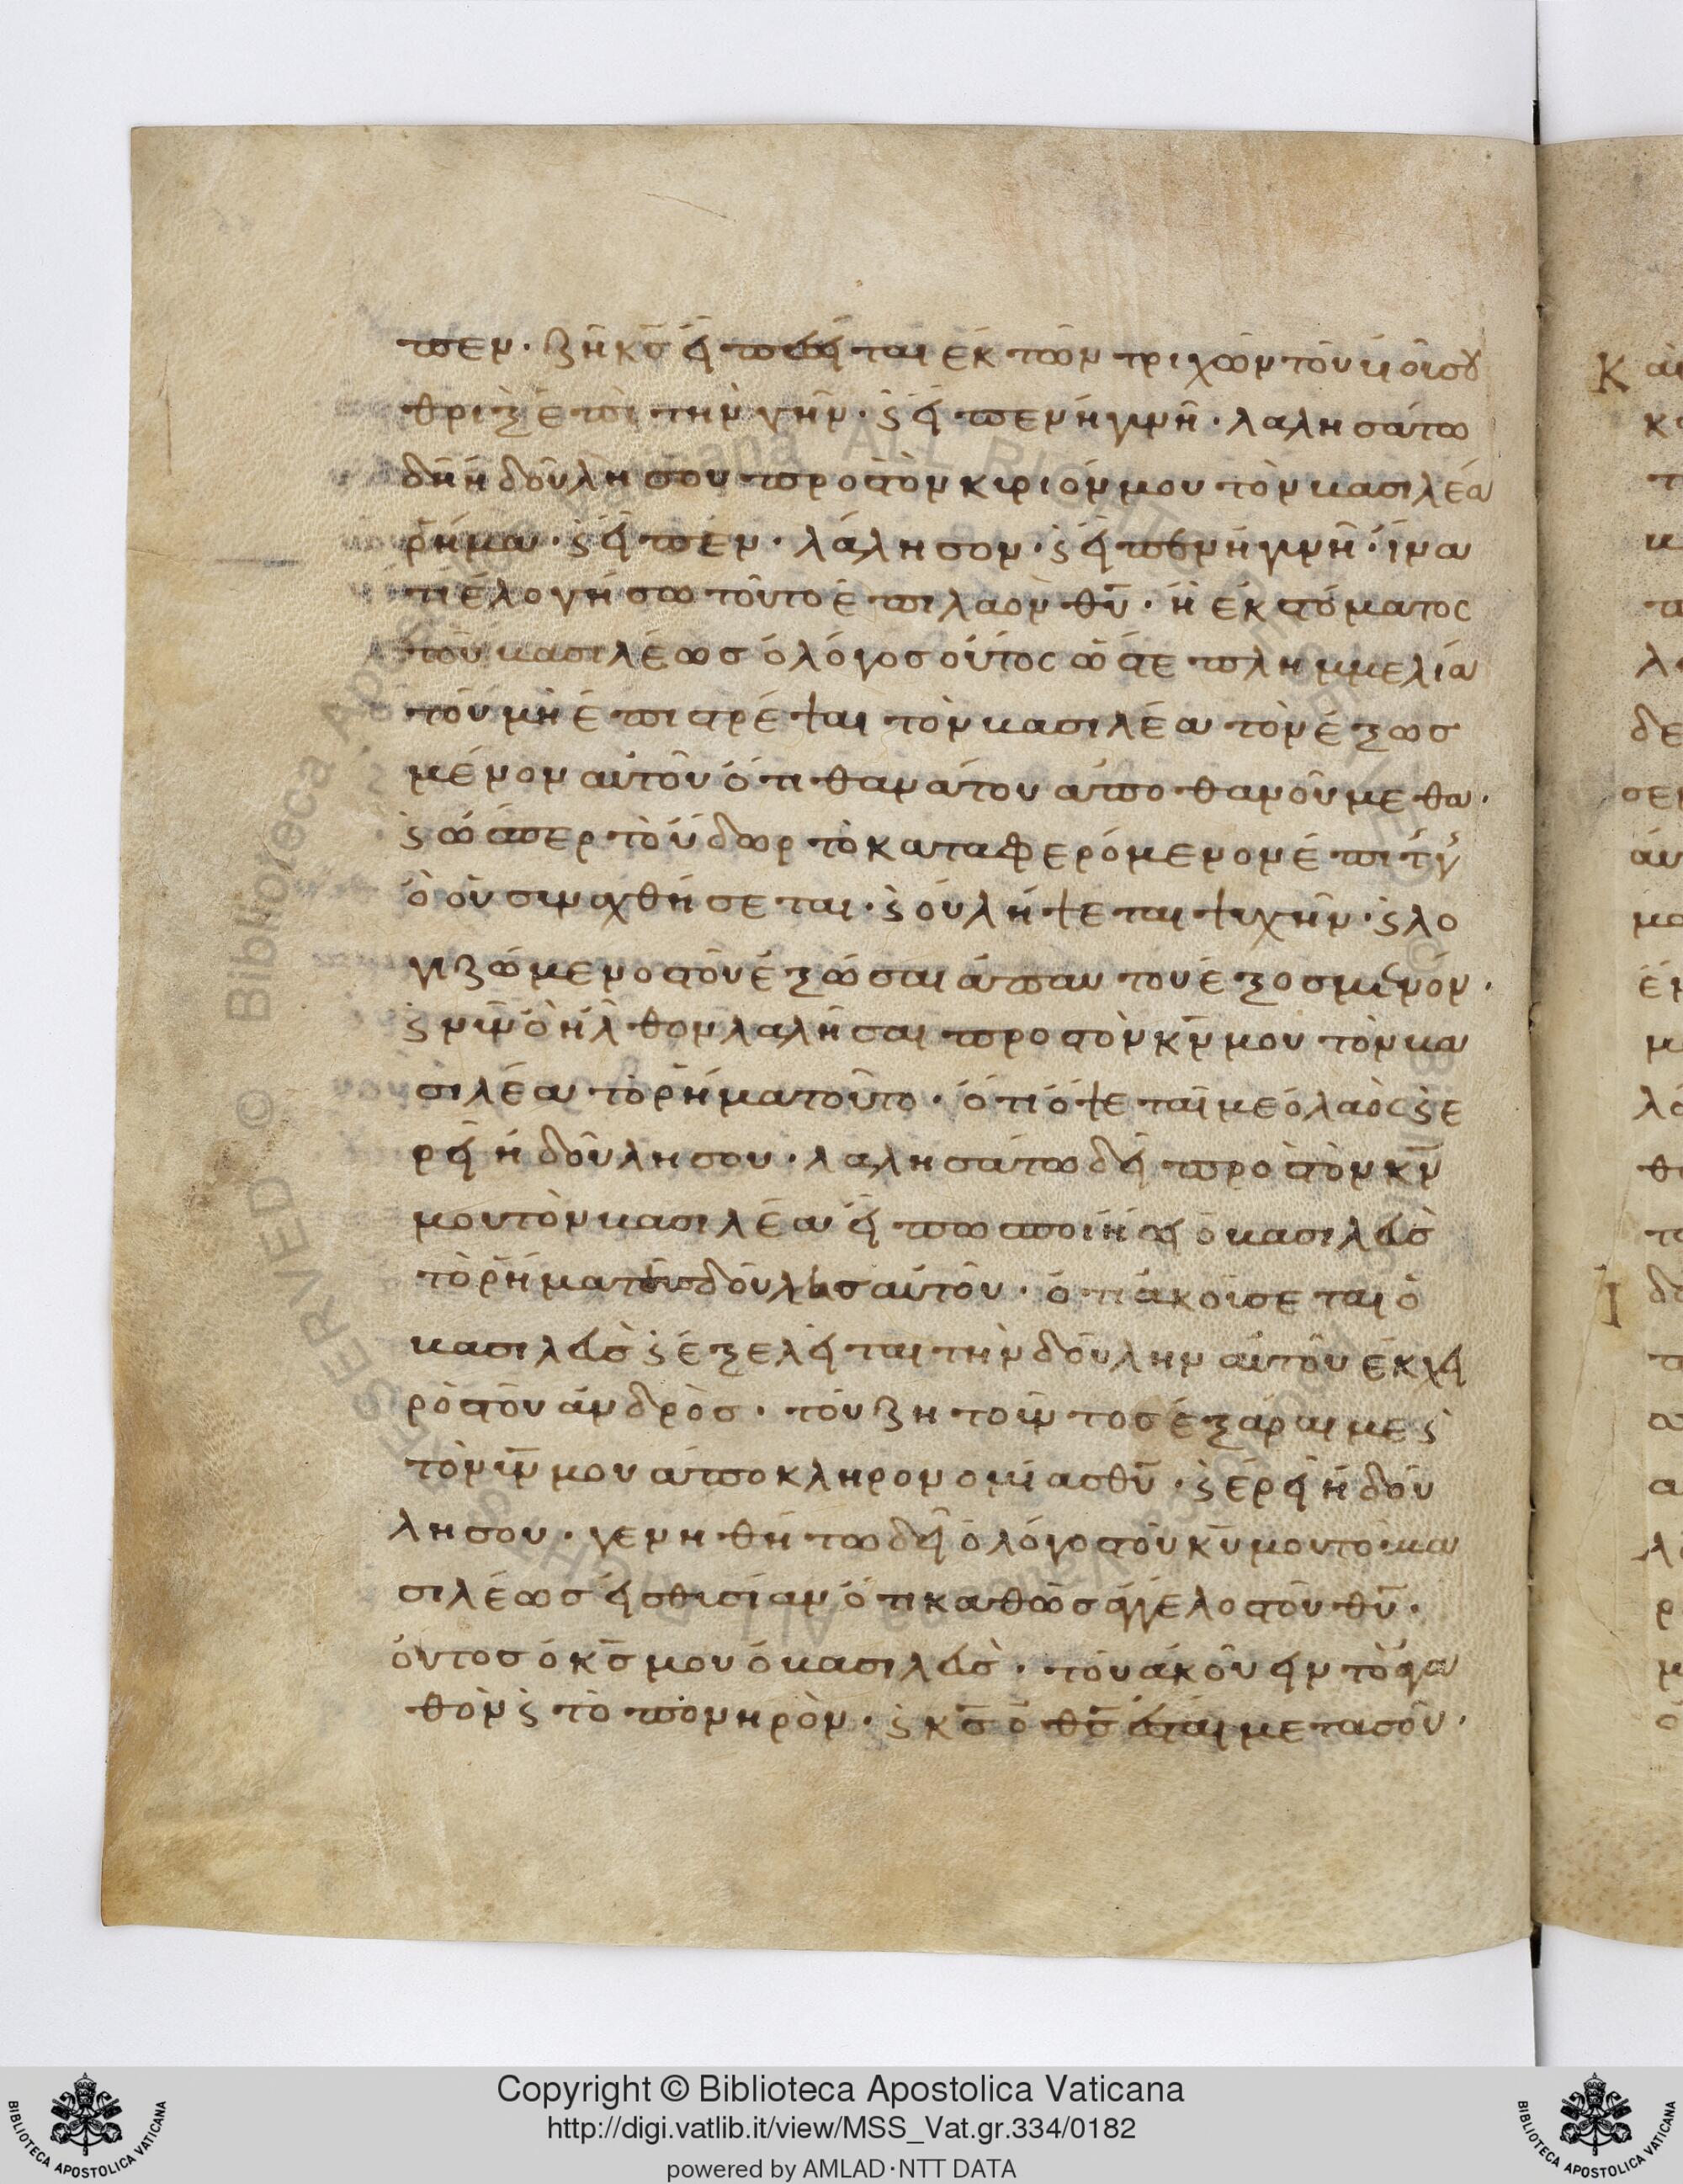 πεν· ζῆ κς̅ εἰ πεσεῖται ἐκ τῶν τριχῶν τοῦ υἱοῦ σου
θρὶξ ἐπὶ τὴν γῆν· ϛ εἶπεν ἡ γυνῆ· λαλησάτω
δὴ ἡ δούλη σου προς τὸν κυριόν μου τὸν βασιλέα
ῥῆμα· ϛ εἶπεν· λάλησον· ϛ εἶπεν ἡ γυνῆ· ἵνα
τί ἐλογήσω τοῦτο ἐπι λαὸν θυ̅· ἢ ἐκ στόματος
τοῦ βασιλέωσ ὁ λόγοσ οὗτος ὥστε πλημμελία
τοῦ μὴ ἐπιστρέψαι τὸν βασιλέα τὸν ἐξωσ
μένον αὐτοῦ ὅτι θανάτου ἀποθανοῦμεθα·
ϛ ὥσπερ τὸ ὕδωρ τὸ καταφερόμενον ἐπι τ γ
ὃ οὐ συναχθήσεται· ϛ οὐ λήψεται ψυχῆν· ϛ λο
γιζώμενος τοῦ ἐξώσαι ἀπ αυτου ἐξοσμένον·
ϛ νῦν ὃ ἦλθον λαλῆσαι προς τὸν κν̅ μου τὸν βα
σιλέα τὸ ῥῆμα τοῦτο· ὅτι ὄψεταῖ με ὁ λαὸς ϛ ἐ
ρεῖ ἡ δούλη σου· λαλησάτω δεὶ προς τὸν κν̅
μου τὸν βασιλέα εἴ πωσ ποιήσει ὁ βασιλεὺσ
τὸ ῥῆμα τῆσ δούλησ αὐτοῦ· ὅτι ἀκούσεται ὁ
βασιλεὺσ ϛ ἐξελεῖται τὴν δούλην αὐτοῦ ἐκ χει
ρὸς τοῦ ἀνδρὸσ· τοῦ ζητοῦντοσ ἐξάραι με ϛ
τὸν υν̅ μου ἀπο κληρονομίασ θυ̅· ϛ ἐρεῖ ἡ δού
λη σου· γενηθήτω δεῖ ὁ λόγος τοῦ κυ̅ μου τοῦ βα
σιλέωσ εἰσ θυσίαν ὅτι καθὼσ ἄγγελος τοῦ θυ̅·
οὕτοσ ὁ κσ̅ μου ὁ βασιλεὺσ· τοῦ ἀκούειν τὸ ἀγα
θὸν ϛ τὸ πονηρὸν· ϛ κσ̅ ὁ θσ̅ ἔσται μετα σοῦ·
Κ αὶ
Copyright © Biblioteca Apostolica Vaticana
http://digi.vatlib.it/view/MSS_Vat.gr.334/0182
powered by AMLAD·NTT DATA
BIBLIOTECA APOSTOLICA VATICANA
BIBLIOTECA APOSTOLICA VATICANA